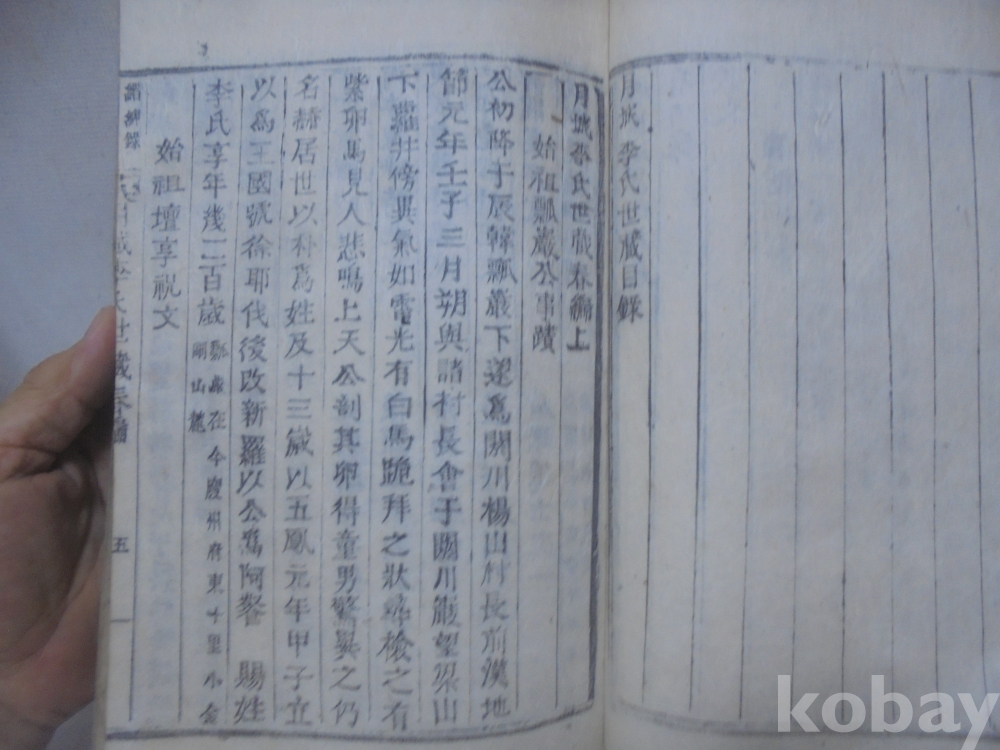 月城李氏世蕆目錄
月城李氏世蕆春編上
始祖瓢巖公事蹟
公初降于辰韓瓢巖下遂爲閼川楊山村長前漢地
節元年壬子三月朔與諸村長會于閼川巖望梁山
下蘿井傍異氣如電光有白馬跪拜之狀尋撿之有
紫卵馬見人悲鳴上天公剖其卵得童男驚異之仍
名赫居世以朴爲姓及十三歲以五鳳元年甲子立
以爲王國號徐耶伐後改新羅以公爲阿飡 賜姓
李氏享年幾二百歲
在今慶州府東十里小金
剛山麓
始祖壇享祝文
五
一
kobay